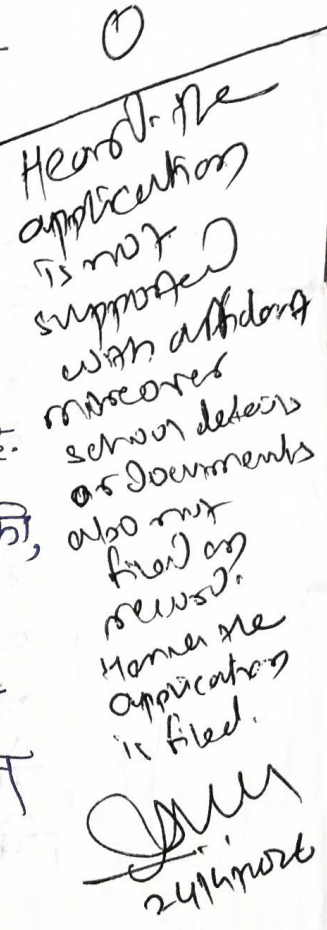 Heard. The
application
is not
supported
with affidavit
moreover
school details
or Documents
also not
filed on
record.
Hence the
application
is filed.